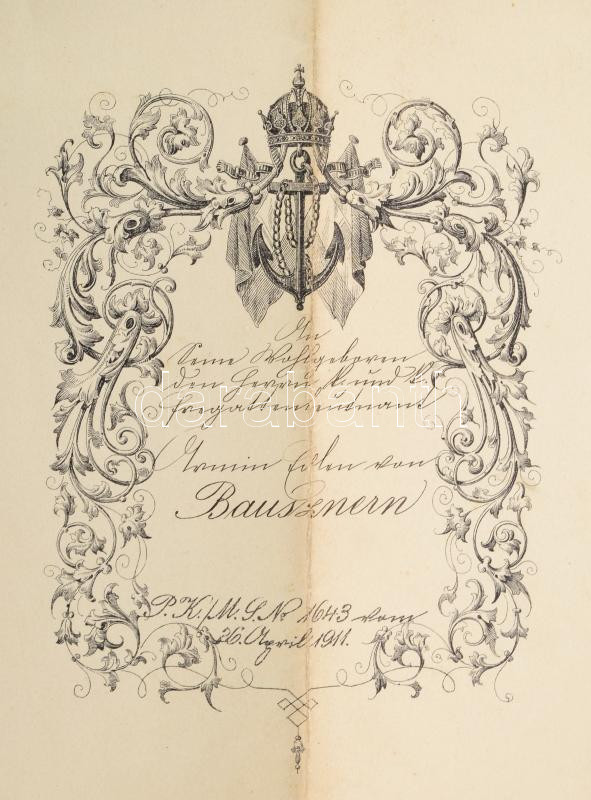 An
Seine Wohlgeboren
den Herrn k. und k.
Fregattenleutnant
Armin Edlen von
Bausznern
P. K./M. S. No 1643 vom
26. April 1911.
darabanth